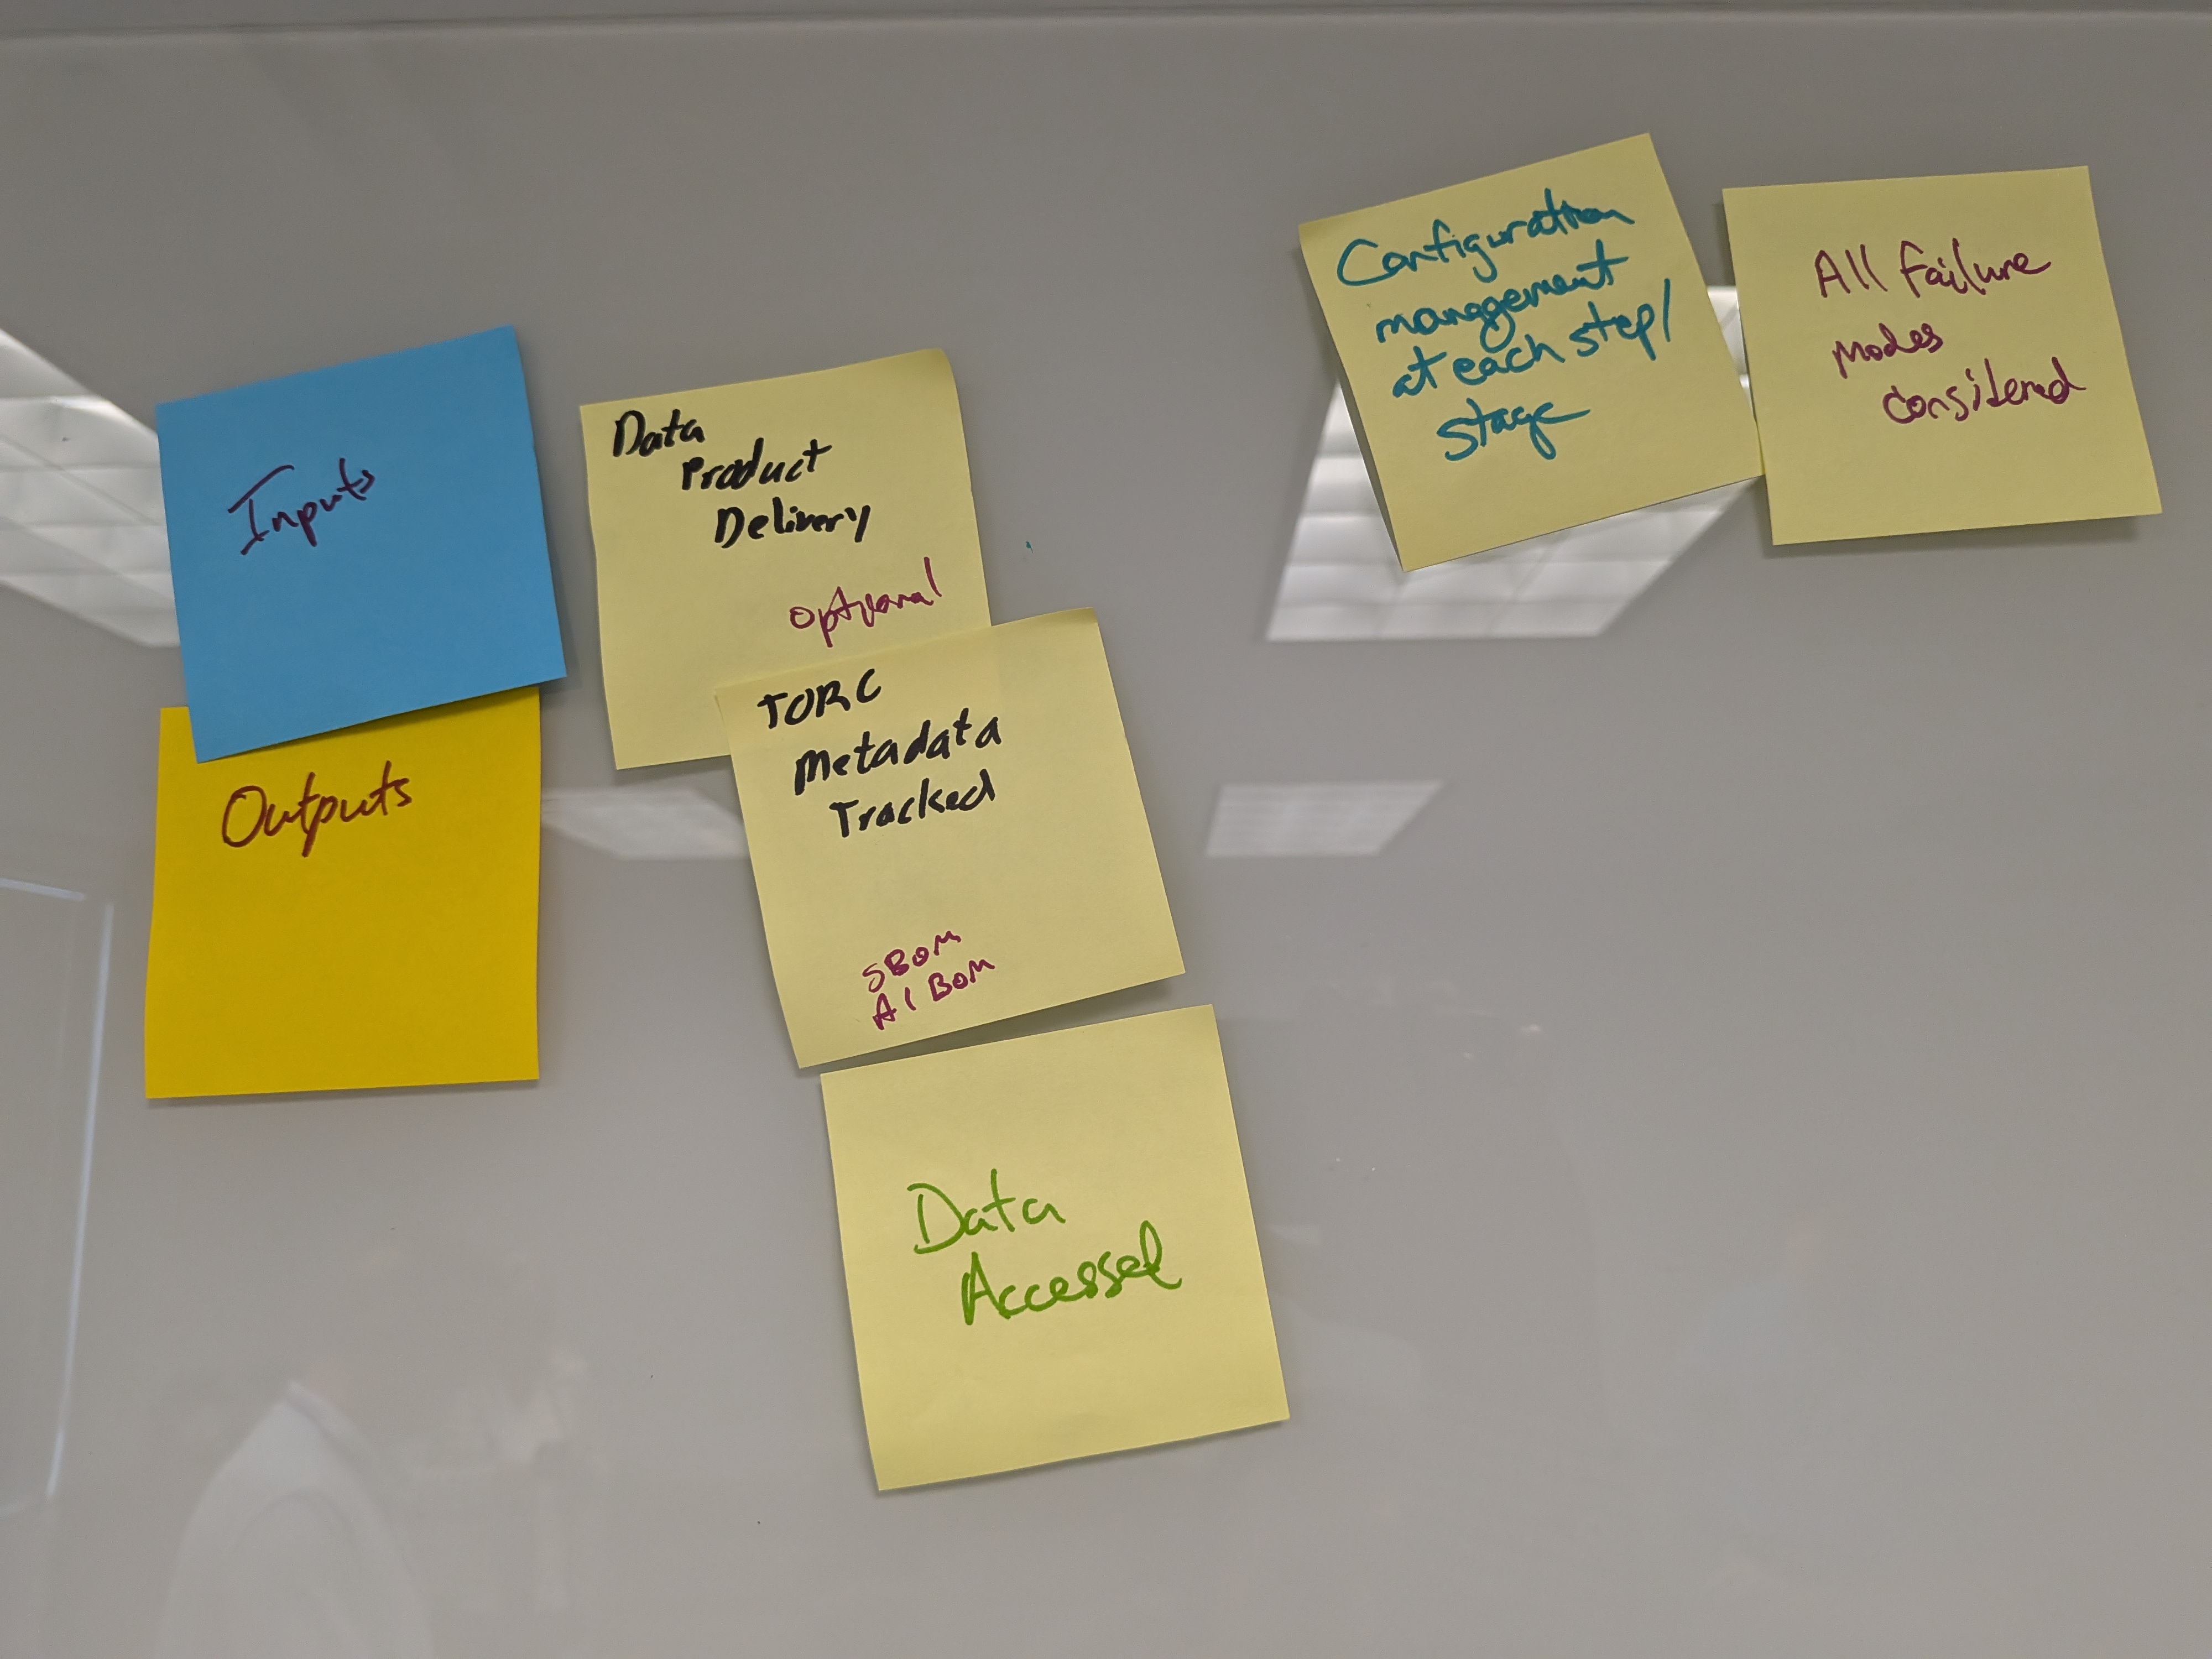 Inputs
Outputs
Data
Product
Delivery
optional
TORC
Metadata
Tracked
SBOM
AI BOM
Data
Accessed
Configuration
management
at each step/
stage
All Failure
modes
considered